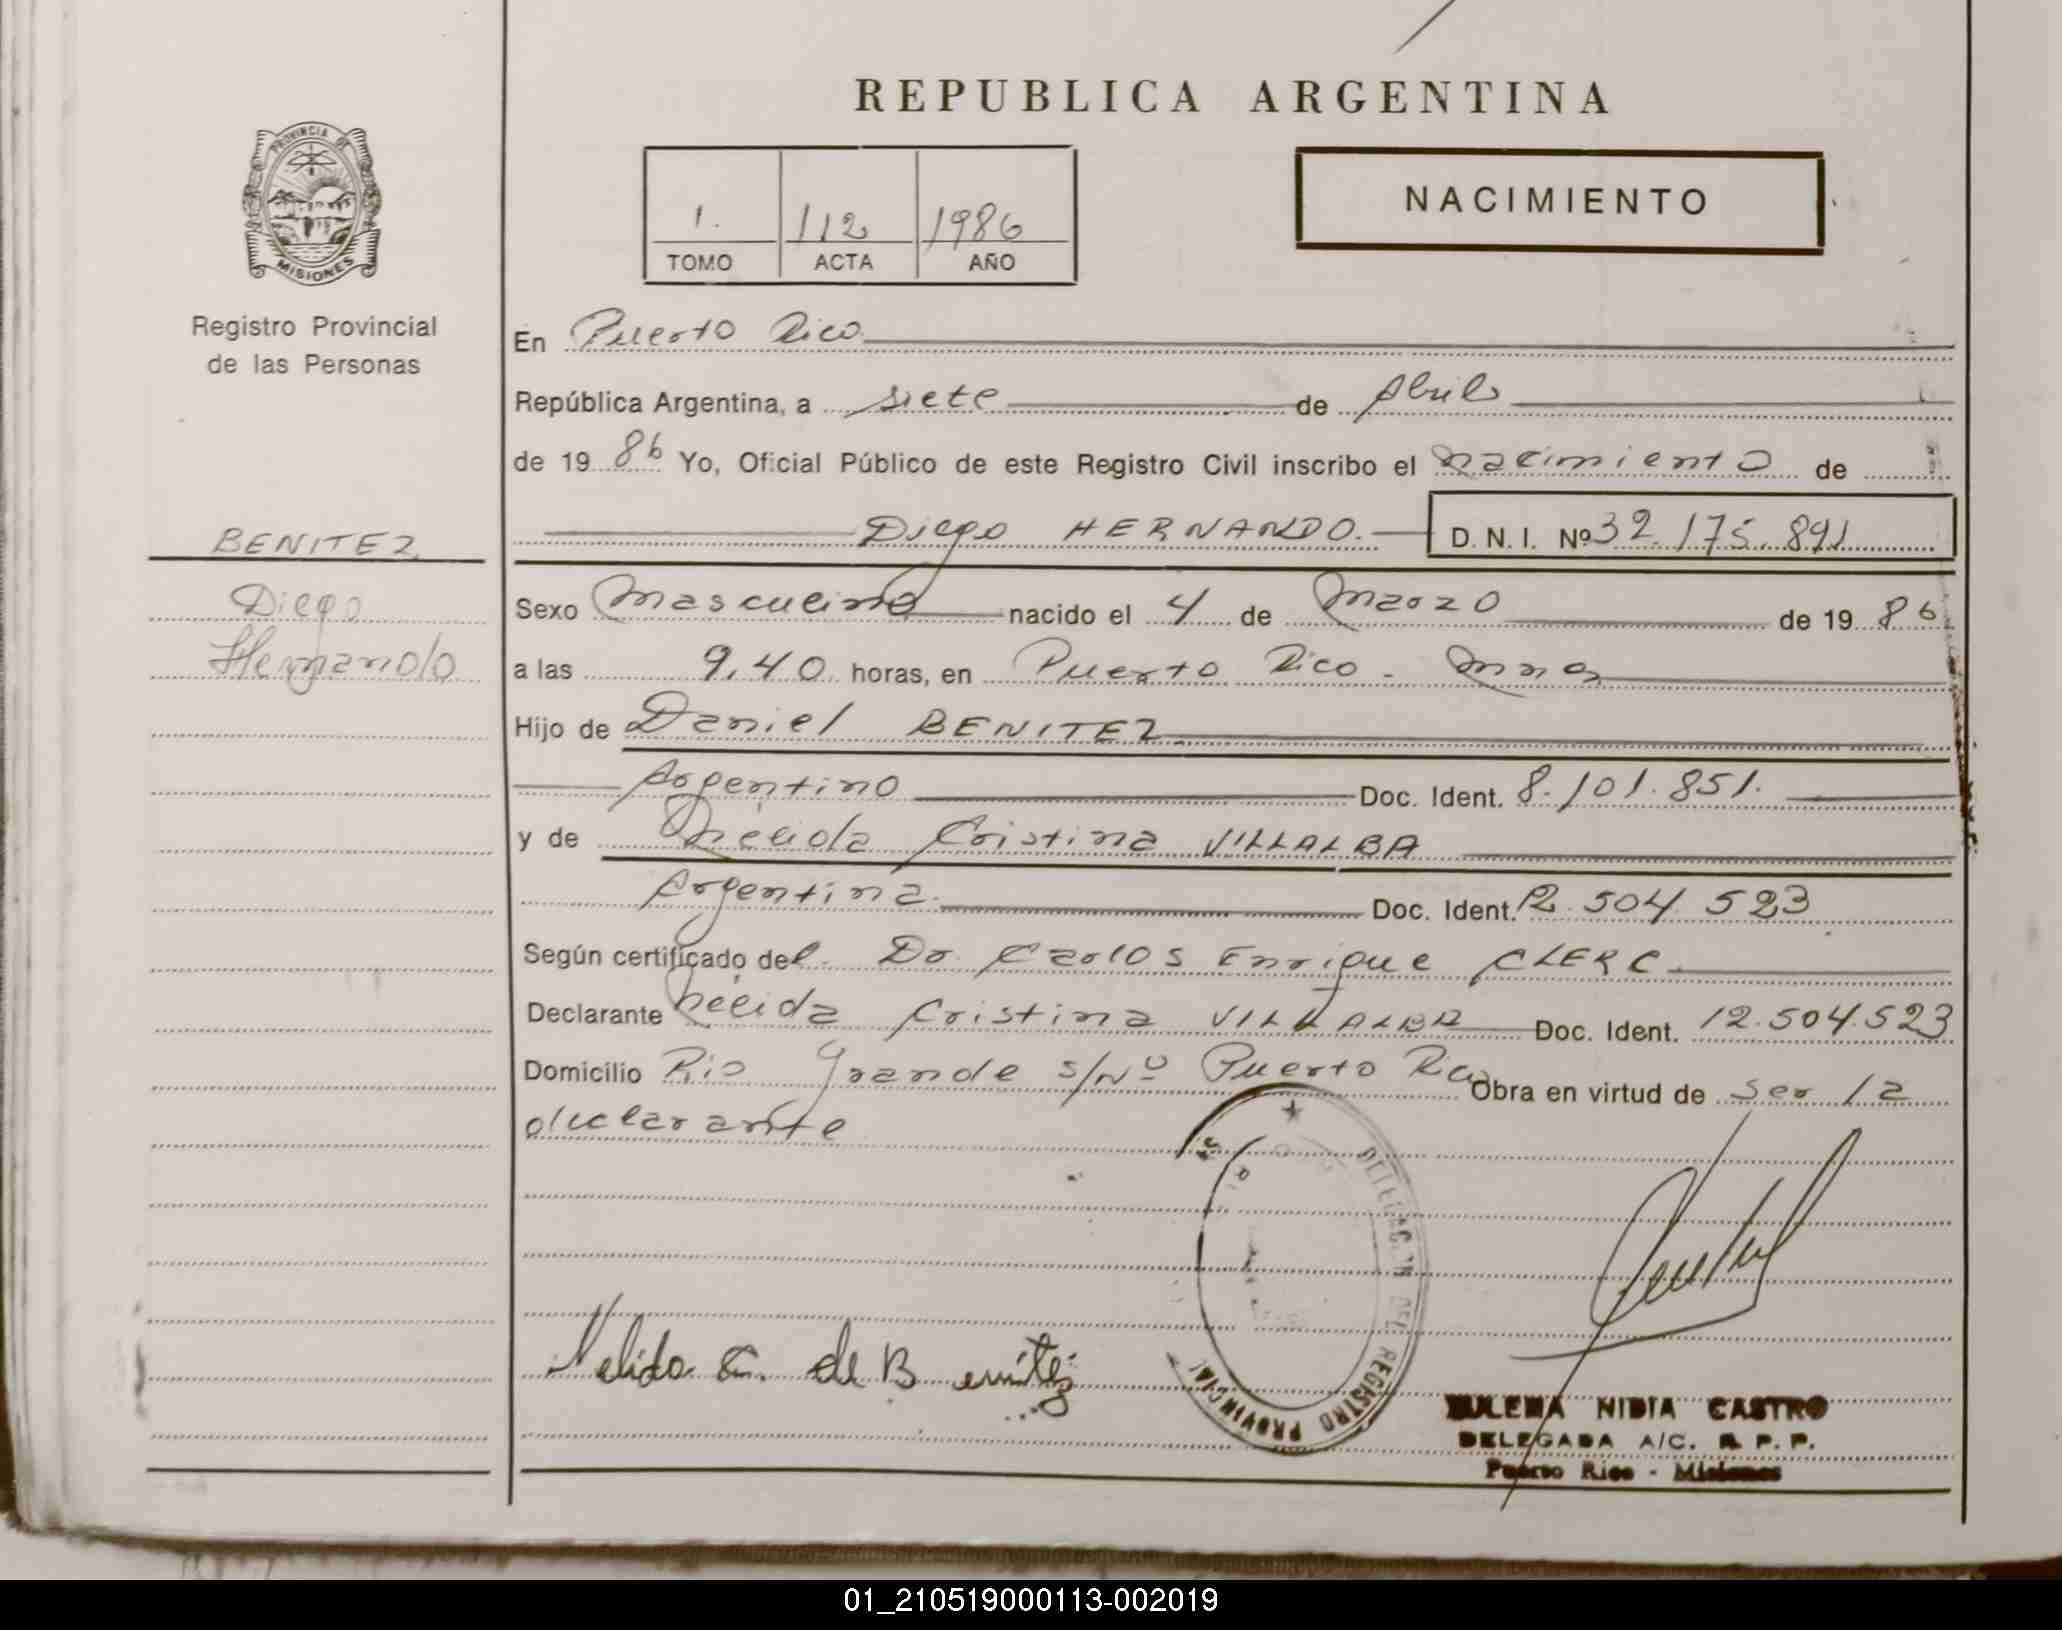 REPUBLICA ARGENTINA
PROVINCIA DE
MISIONES
Registro Provincial
de las Personas
1. 112 1986
TOMO ACTA AÑO
NACIMIENTO
En Puerto Rico
República Argentina, a siete de Abril
de 19 86 Yo, Oficial Público de este Registro Civil inscribo el nacimiento de
BENITEZ
Diego
Hernando
Diego HERNANDO. D. N. I. Nº 32.175.891
Sexo Masculino nacido el 4 de Marzo de 19 86
a las 9,40 horas, en Puerto Rico - Mnes
Hijo de Daniel BENITEZ
Argentino Doc. Ident. 8.101.851.
y de Nélida Cristina VILLALBA
Argentina. Doc. Ident. 12.504.523
Según certificado del Dr. Carlos Enrique CLERC
Declarante Nélida Cristina VILLALBA Doc. Ident. 12.504.523
Domicilio Rio Grande s/Nº Puerto Rico Obra en virtud de ser la
declarante
DELEGACION DEL REGISTRO PROVINCIAL
Nelida C. de Benítez
ZULEMA NIDIA CASTRO
DELEGADA A/C. R. P. P.
Puerto Rico - Misiones
01_210519000113-002019